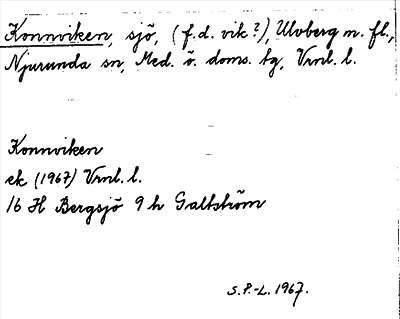 Konnviken, sjö, (f.d. vik?), Ulvberg m. fl.,
Njurunda sn, Med. ö. doms. tg, Vrnl. l.
Konnviken
ek (1967) Vrnl. l.
16 H Bergsjö 9 h Galtström
S.P.-L. 1967.